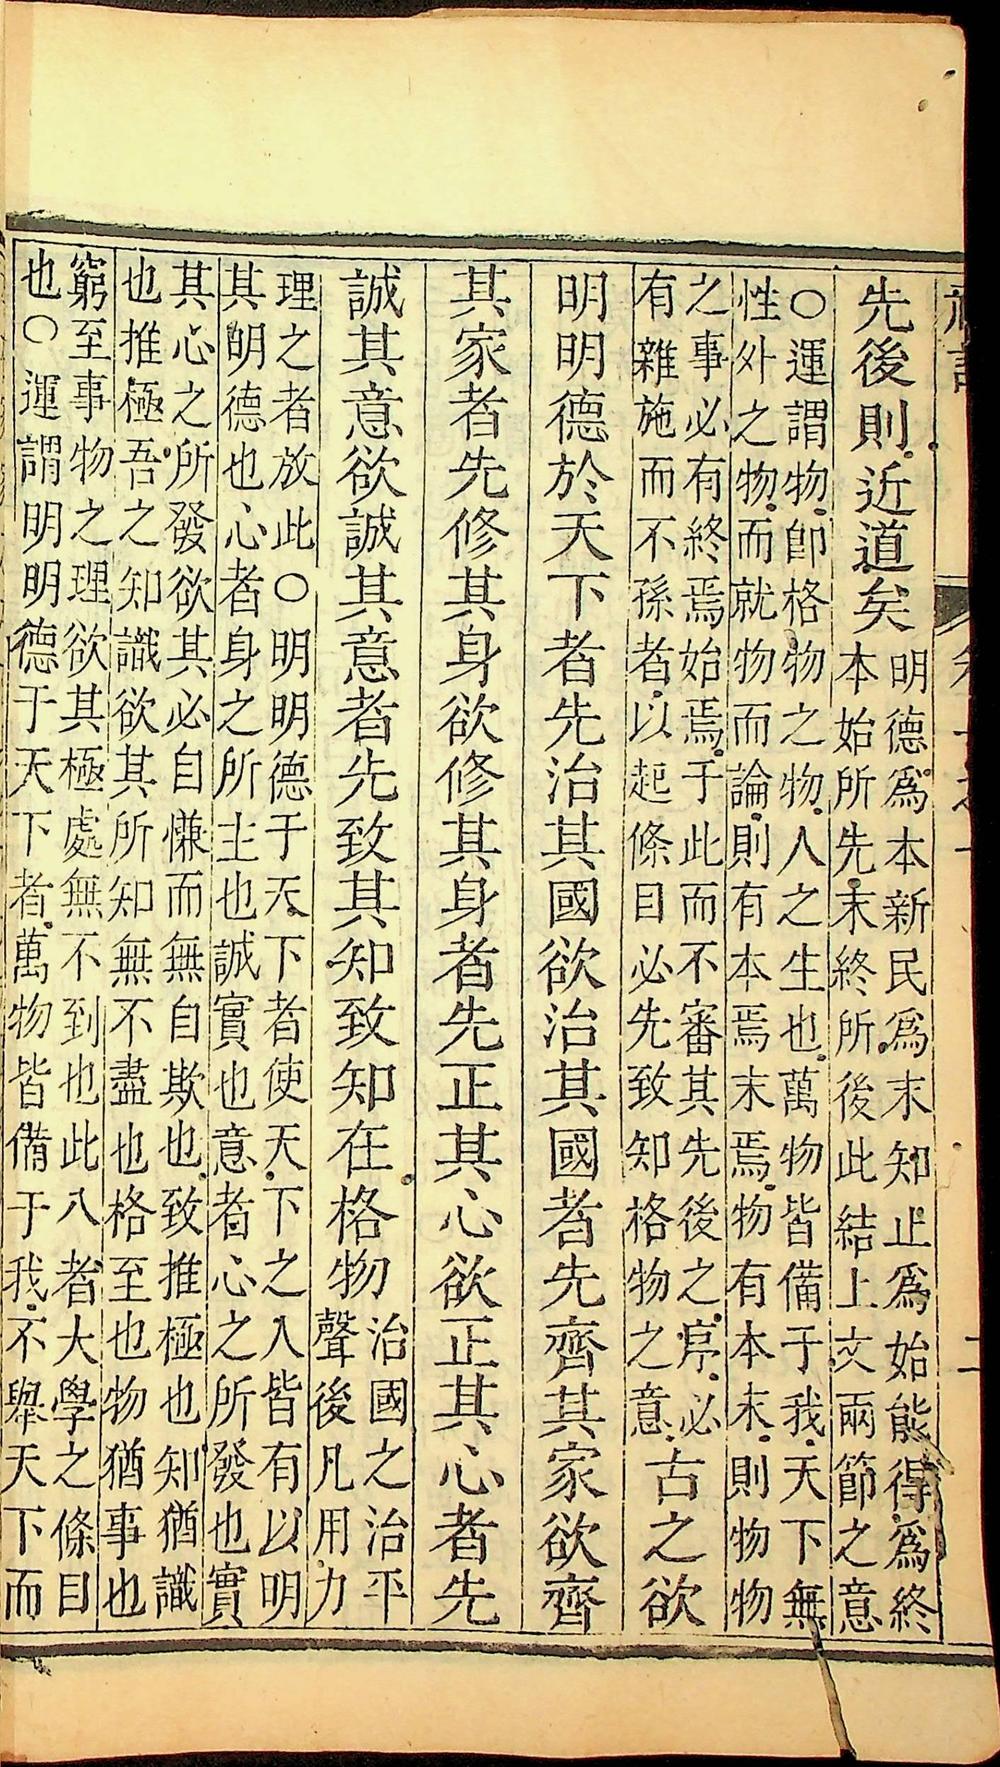 先後則近道矣
明德爲本新民爲末知止爲始能得爲終
本始所先末終所後此結上文兩節之意
○運謂物即格物之物人之生也萬物皆備于我天下無
性外之物而就物而論則有本焉末焉物有本末則物物
之事必有終焉始焉于此而不審其先後之序必
有雜施而不孫者以起條目必先致知格物之意
古之欲
明明德於天下者先治其國欲治其國者先齊其家欲齊
其家者先修其身欲修其身者先正其心欲正其心者先
誠其意欲誠其意者先致其知致知在格物
治國之治平
聲後凡用力
理之者放此○明明德于天下者使天下之人皆有以明
其明德也心者身之所主也誠實也意者心之所發也實
其心之所發欲其必自慊而無自欺也致推極也知猶識
也推極吾之知識欲其所知無不盡也格至也物猶事也
窮至事物之理欲其極處無不到也此八者大學之條目
也○運謂明明德于天下者萬物皆備于我不舉天下而